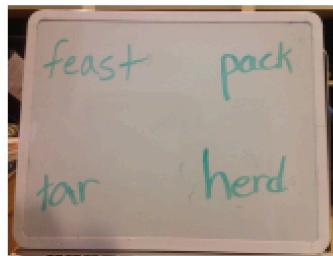 feast pack
tar herd